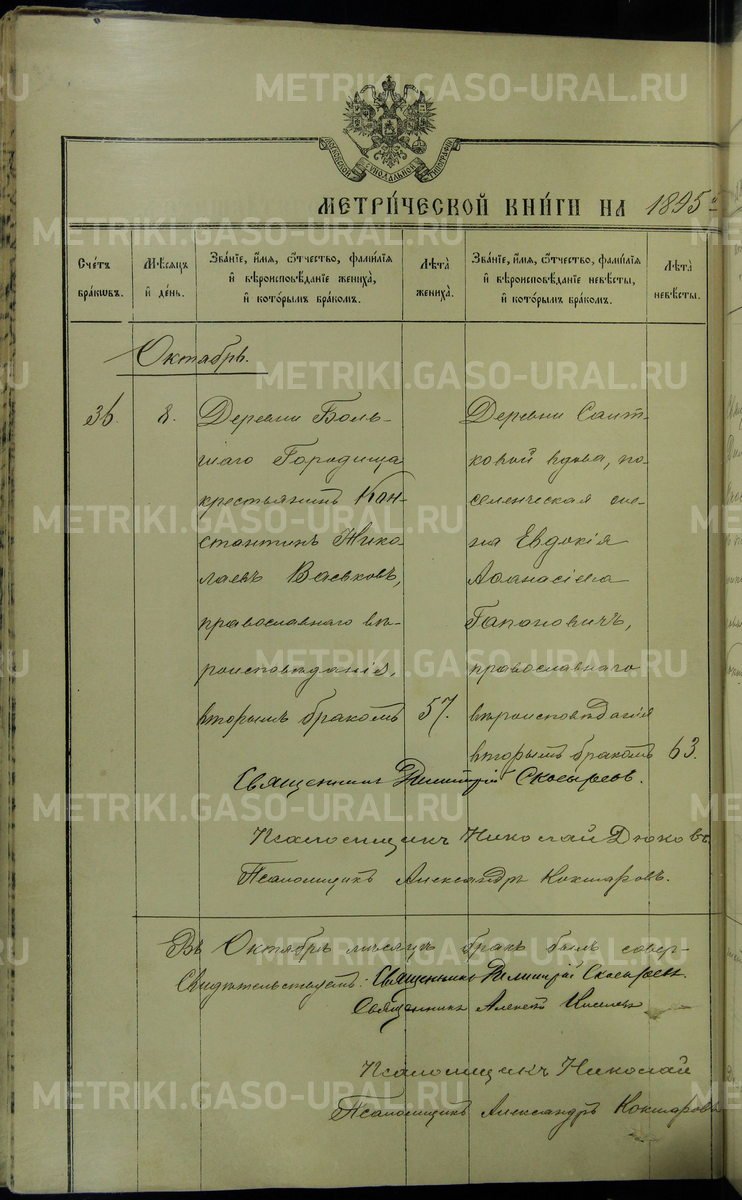 METRIKI.GASO-URAL.RU
МОСКОВСКОЙ СУНОДАЛЬНОЙ ТИПОГРАФІИ
МЕТРИ́ЧЕСКОЙ КНИ́ГИ НА 1895 г.
Сче́тъ бра́кѡвъ.
Мѣ́сяцъ и́ де́нь.
Зва́нїе, и́мя, ѻ́тчество, фами́лїя и́ вѣроисповѣ́данїе жениха̀, и́ кото́рымъ бра́комъ.
Лѣ́та̀ жениха̀.
Зва́нїе, и́мя, ѻ́тчество, фами́лїя и́ вѣроисповѣ́данїе невѣ́сты, и́ кото́рымъ бра́комъ.
Лѣ́та̀ невѣ́сты.
Октябрь.
36.
8.
Деревни Боль-
шаго Городища
крестьянинъ Кон-
стантинъ Нико-
лаевъ Васьковъ,
православнаго вѣ-
роисповѣданія,
вторымъ бракомъ
57.
Деревни Саит-
ковой вдова, по-
селенческая же-
на Евдокія
Аѳанасіева
Гапоновичъ,
православнаго
вѣроисповѣданія
вторымъ бракомъ
63.
Священникъ Димитрій Скосыревъ.
Псаломщикъ Николай Дюковъ.
Псаломщикъ Александръ Кокшаровъ.
Въ Октябрѣ мѣсяцѣ бракъ былъ совер-
Свидѣтельствуетъ: Священникъ Димитрій Скосыревъ.
Священникъ Алексѣй
Псаломщикъ Николай
Псаломщикъ Александръ Кокшаровъ